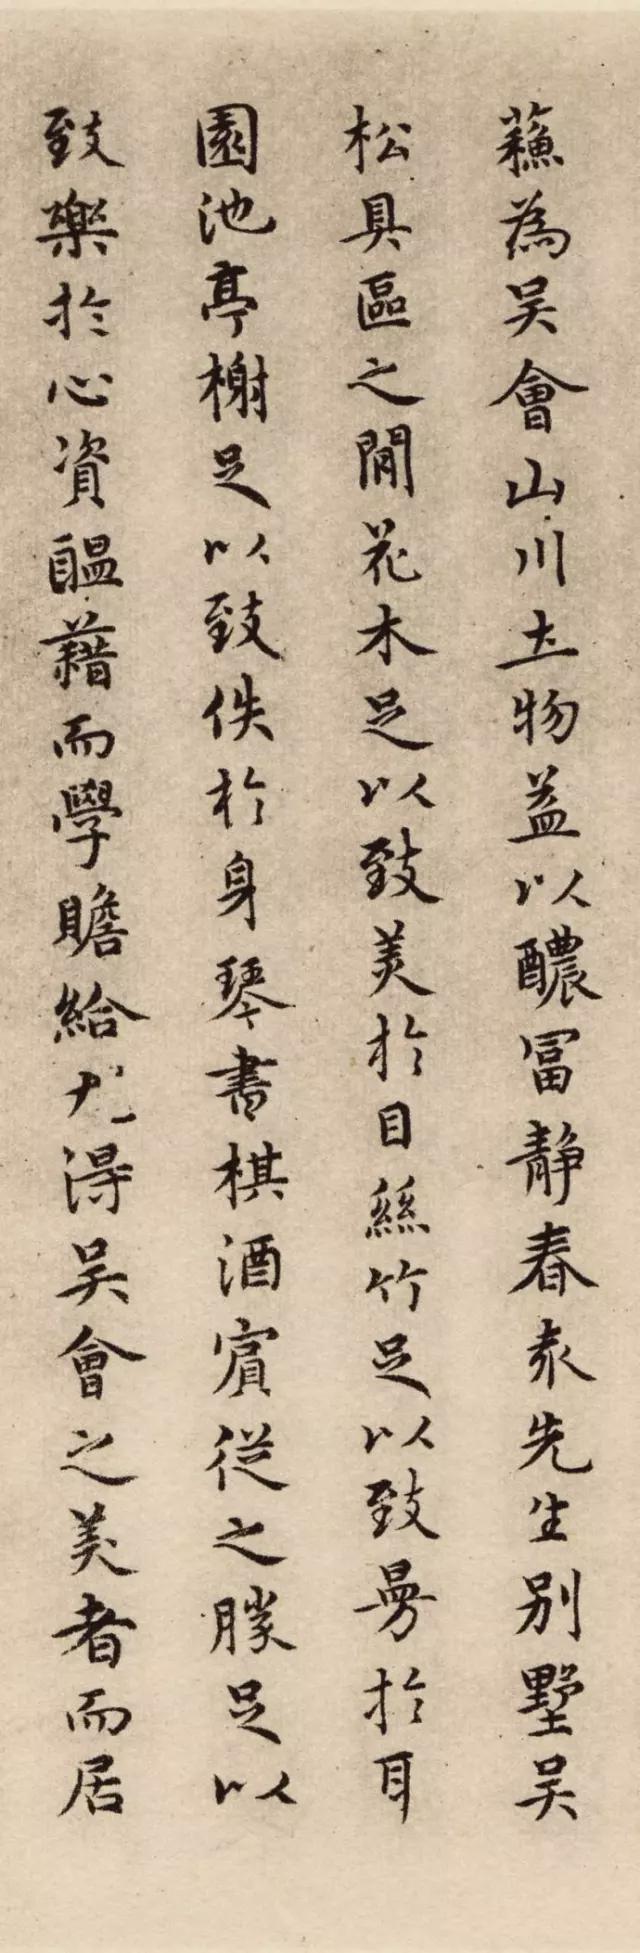 蘓為吴會山川土物益以醲冨静春袁先生别墅吴
松具區之閒花木足以致美於目絲竹足以致曼於耳
園池亭榭足以致佚於身琴書棋酒賔從之勝足以
致樂於心資醖藉而學贍給尤淂吴會之美者而居